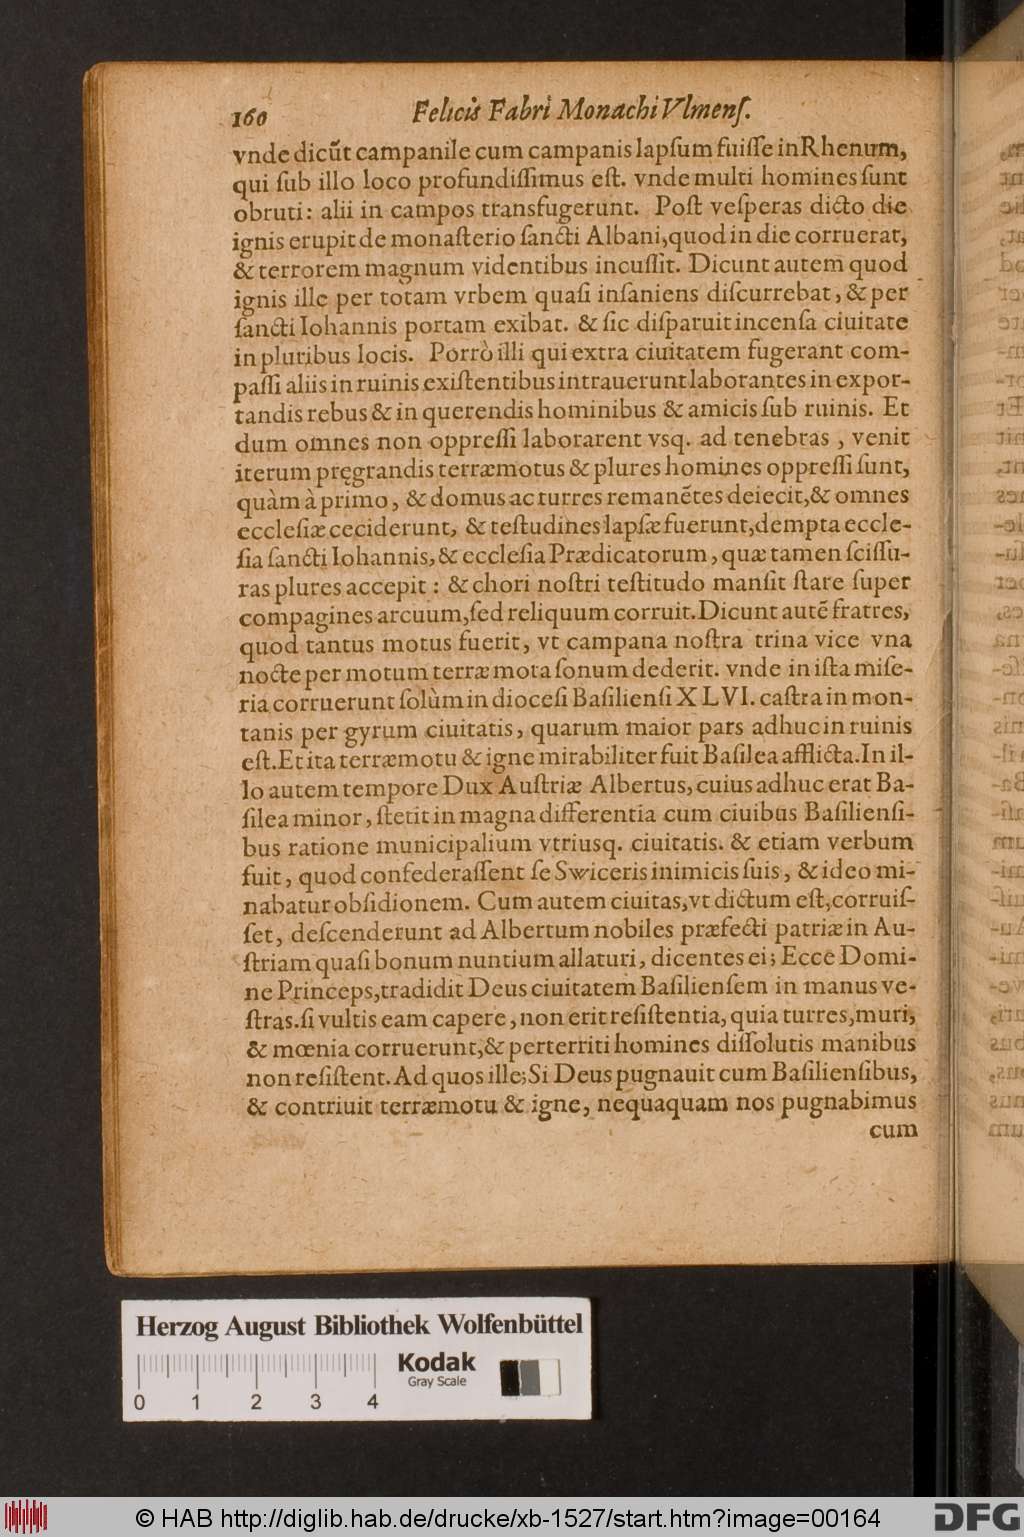 160 Felicis Fabri Monachi Vlmenſ.
vnde dicūt campanile cum campanis lapſum fuiſſe in Rhenum,
qui ſub illo loco profundiſſimus eſt. vnde multi homines ſunt
obruti: alii in campos transfugerunt. Poſt veſperas dicto die
ignis erupit de monaſterio ſancti Albani, quod in die corruerat,
& terrorem magnum videntibus incuſſit. Dicunt autem quod
ignis ille per totam vrbem quaſi inſaniens diſcurrebat, & per
ſancti Iohannis portam exibat. & ſic diſparuit incenſa ciuitate
in pluribus locis. Porrò illi qui extra ciuitatem fugerant com-
paſſi aliis in ruinis exiſtentibus intrauerunt laborantes in expor-
tandis rebus & in querendis hominibus & amicis ſub ruinis. Et
dum omnes non oppreſſi laborarent vsq. ad tenebras, venit
iterum pręgrandis terræmotus & plures homines oppreſſi ſunt,
quàm à primo, & domus ac turres remanētes deiecit, & omnes
eccleſiæ ceciderunt, & teſtudines lapſæ fuerunt, dempta eccle-
ſia ſancti Iohannis, & eccleſia Prædicatorum, quæ tamen ſciſſu-
ras plures accepit: & chori noſtri teſtitudo manſit ſtare ſuper
compagines arcuum, ſed reliquum corruit. Dicunt autē fratres,
quod tantus motus fuerit, vt campana noſtra trina vice vna
nocte per motum terræ mota ſonum dederit. vnde in iſta miſe-
ria corruerunt ſolùm in dioceſi Baſilienſi XLVI. caſtra in mon-
tanis per gyrum ciuitatis, quarum maior pars adhuc in ruinis
eſt. Et ita terræmotu & igne mirabiliter fuit Baſilea afflicta. In il-
lo autem tempore Dux Auſtriæ Albertus, cuius adhuc erat Ba-
ſilea minor, ſtetit in magna differentia cum ciuibus Baſilienſi-
bus ratione municipalium vtriusq. ciuitatis. & etiam verbum
fuit, quod confederaſſent ſe Swiceris inimicis ſuis, & ideo mi-
nabatur obſidionem. Cum autem ciuitas, vt dictum eſt, corruiſ-
ſet, deſcenderunt ad Albertum nobiles præfecti patriæ in Au-
ſtriam quaſi bonum nuntium allaturi, dicentes ei; Ecce Domi-
ne Princeps, tradidit Deus ciuitatem Baſilienſem in manus ve-
ſtras. ſi vultis eam capere, non erit reſiſtentia, quia turres, muri,
& mœnia corruerunt, & perterriti homines diſſolutis manibus
non reſiſtent. Ad quos ille; Si Deus pugnauit cum Baſilienſibus,
& contriuit terræmotu & igne, nequaquam nos pugnabimus
cum
Herzog August Bibliothek Wolfenbüttel
Kodak
Gray Scale
0 1 2 3 4
© HAB http://diglib.hab.de/drucke/xb-1527/start.htm?image=00164
DFG